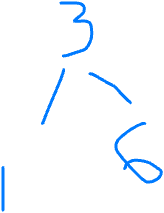 3
1 6